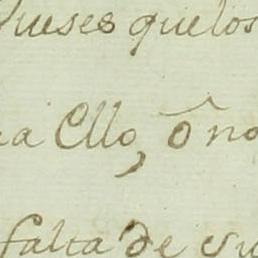 Jueses quelos
a Ello, ô no
falta de su